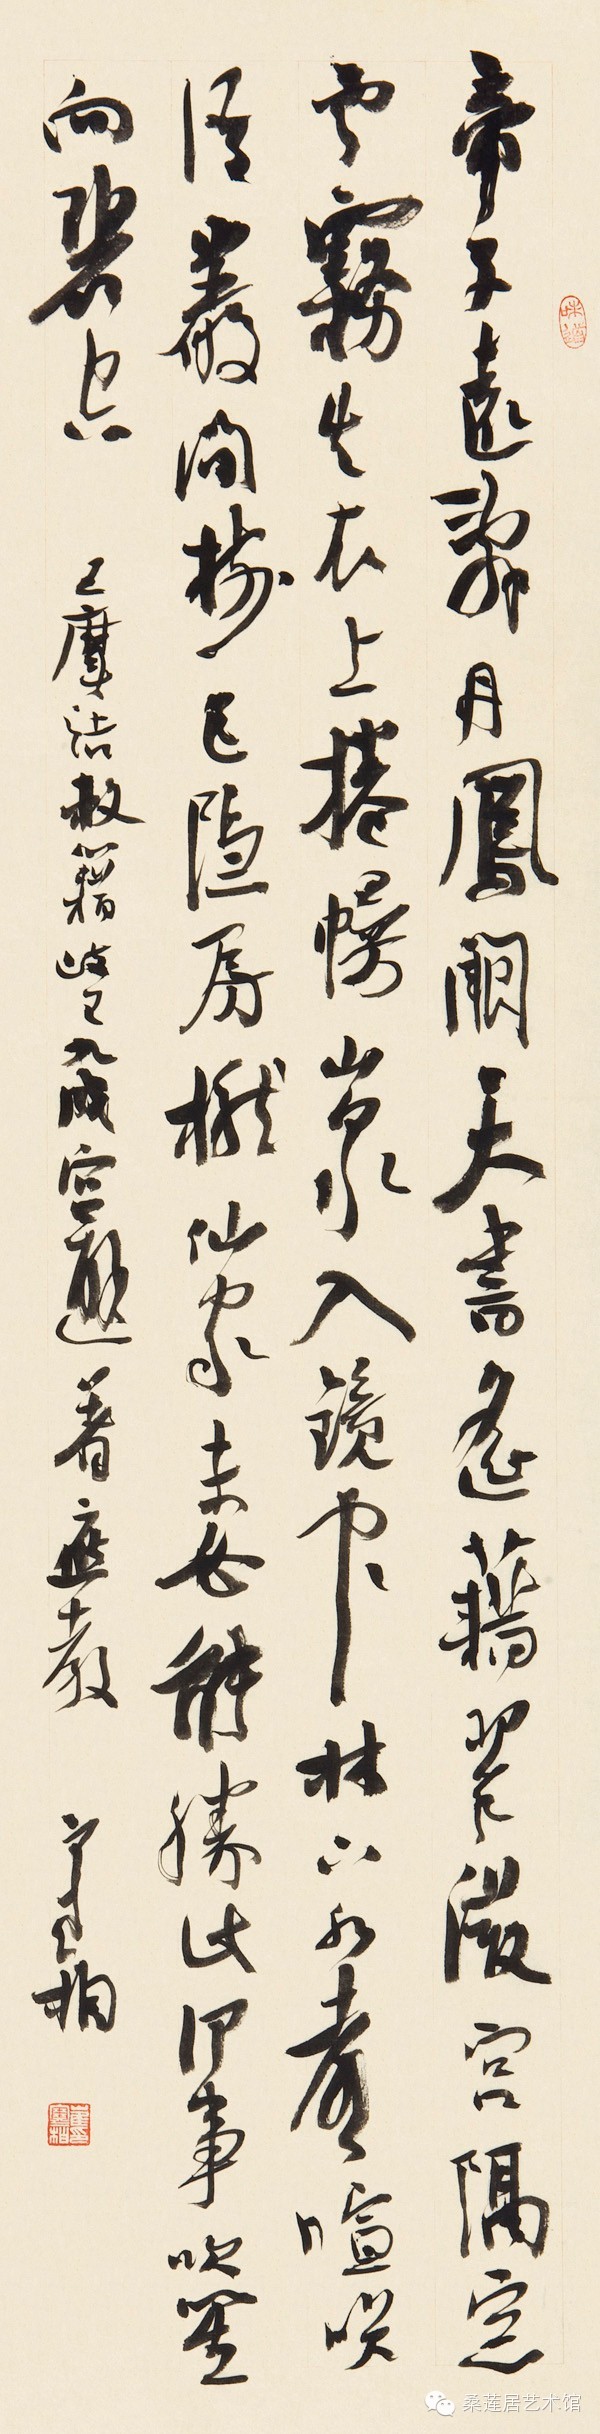 帝子遠辭丹鳳闕天書遙藉翠微宮隔窓
雲霧生衣上捲幔山泉入鏡中林下水聲喧咲
語巖間樹色隱房櫳仙家未必能勝此何事吹笙
向碧空
王摩詰敕籍岐王九成宮避暑應教
桑莲居艺术馆